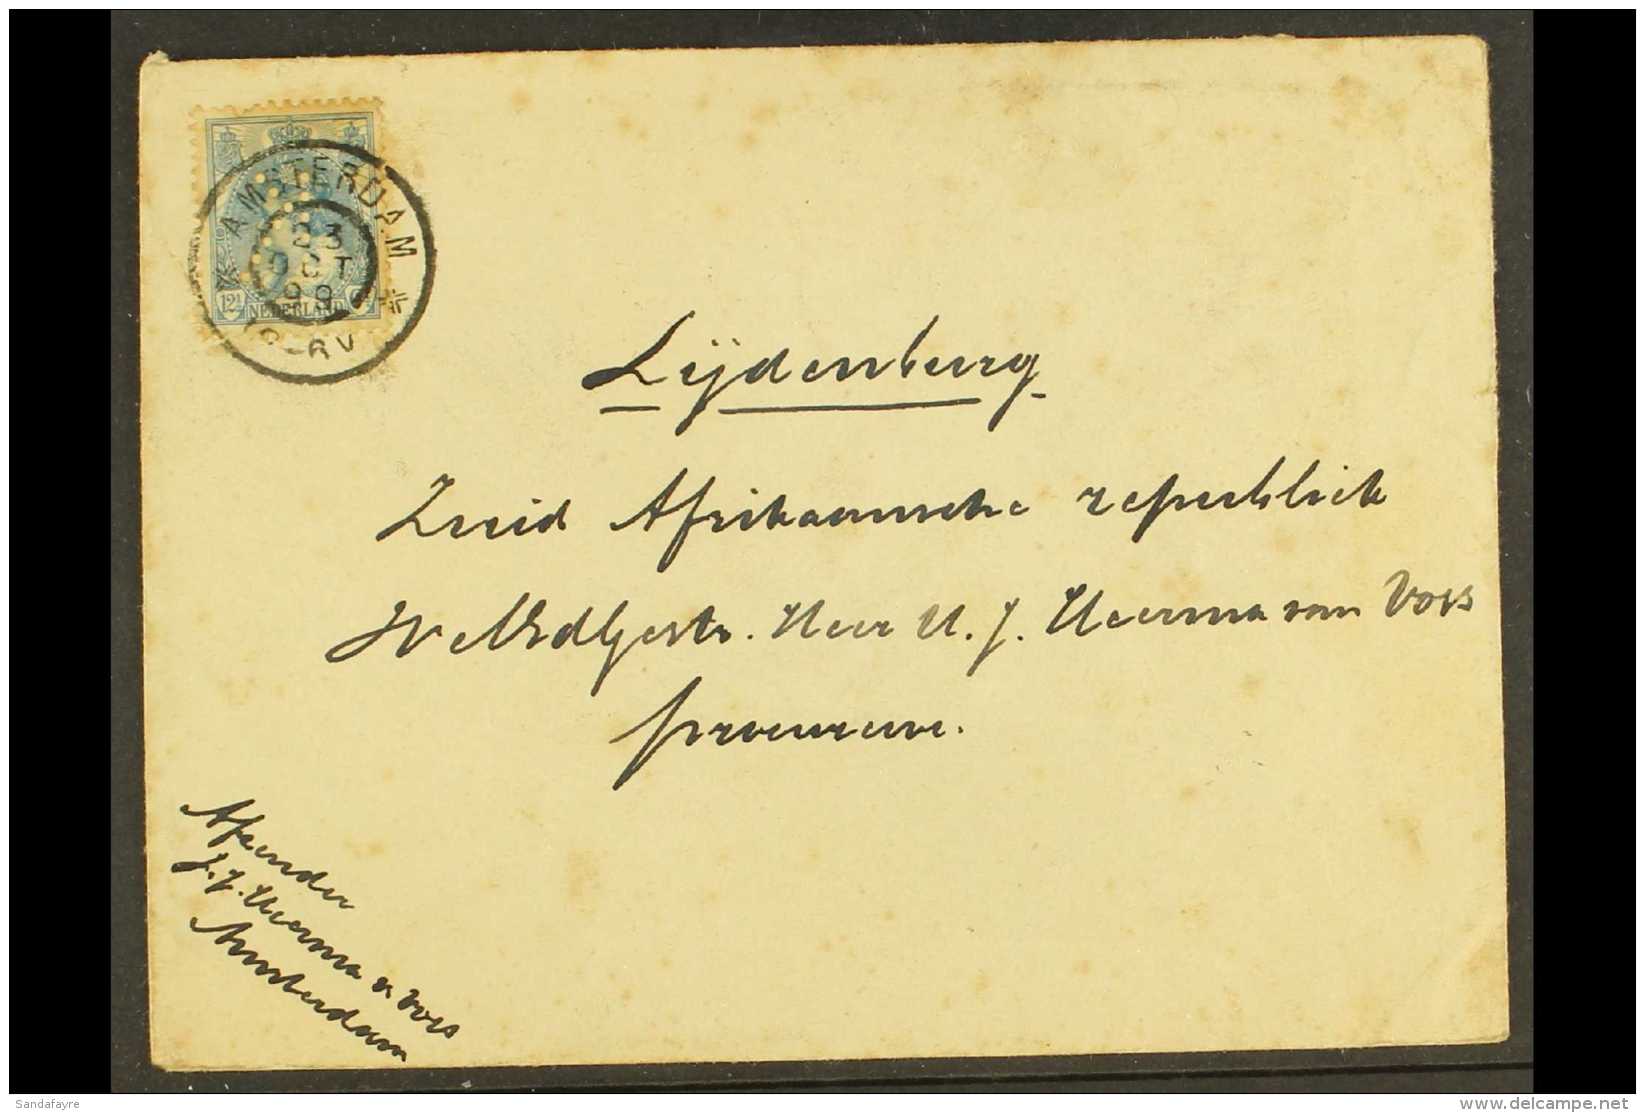 AMSTERDAM
23
OCT
99
12½
NEDERLAND
Lijdenburg
Zuid Afrikaansche republiek
WelEdlgestr. Heer U. J. Heerma van Voss
Afzender
J. J. Heerma v. Voss
Amsterdam
Sandafayre
delcampe.net